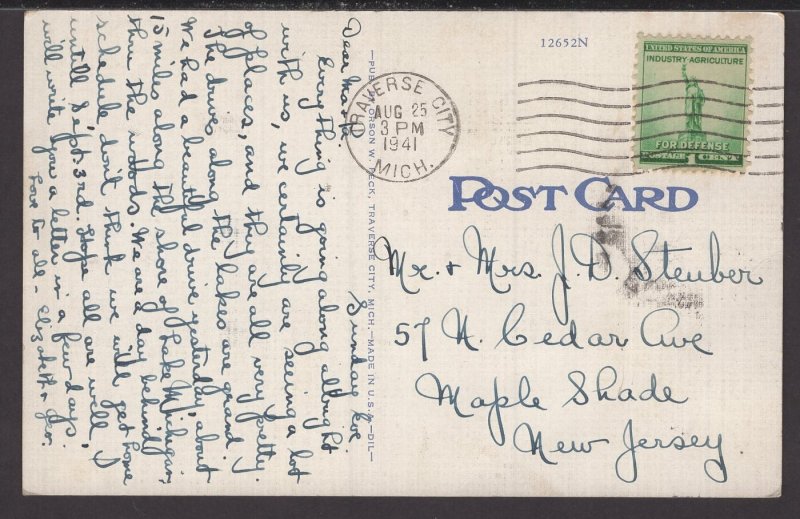 Sunday Eve.
Dear Mark.
Everything is going along allright
with us, we certainly are seeing a lot
of places, and they are all very pretty.
The drives along the lakes are grand
We had a beautiful drive yesterday, about
15 miles along the shore of Lake Michigan,
thru the woods. We are a day behind
schedule, don't think we will get home
untill Sept. 3rd. Hope all are well, I
will write you a letter in a few days.
Love to all - Elizabeth +
—PUB. BY ORSON W. PECK, TRAVERSE CITY, MICH.—MADE IN U.S.A.—DIL—
12652N
TRAVERSE CITY
AUG 25
3 PM
1941
MICH.
UNITED STATES OF AMERICA
INDUSTRY-AGRICULTURE
FOR DEFENSE
POSTAGE 1 CENT
POST CARD
Mr. + Mrs. J. D. Steuber
57 N. Cedar Ave
Maple Shade
New Jersey